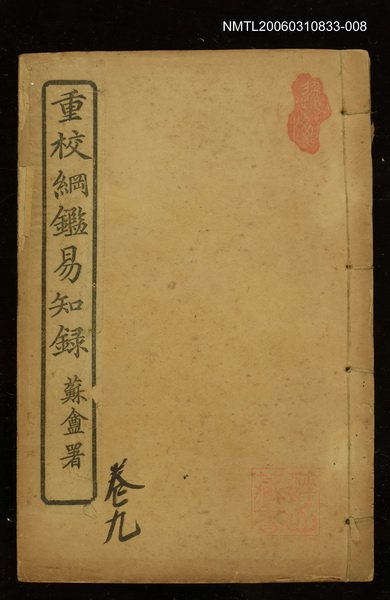 NMTL20060310833-008
重校綱鑑易知録
蘇盦署
卷九